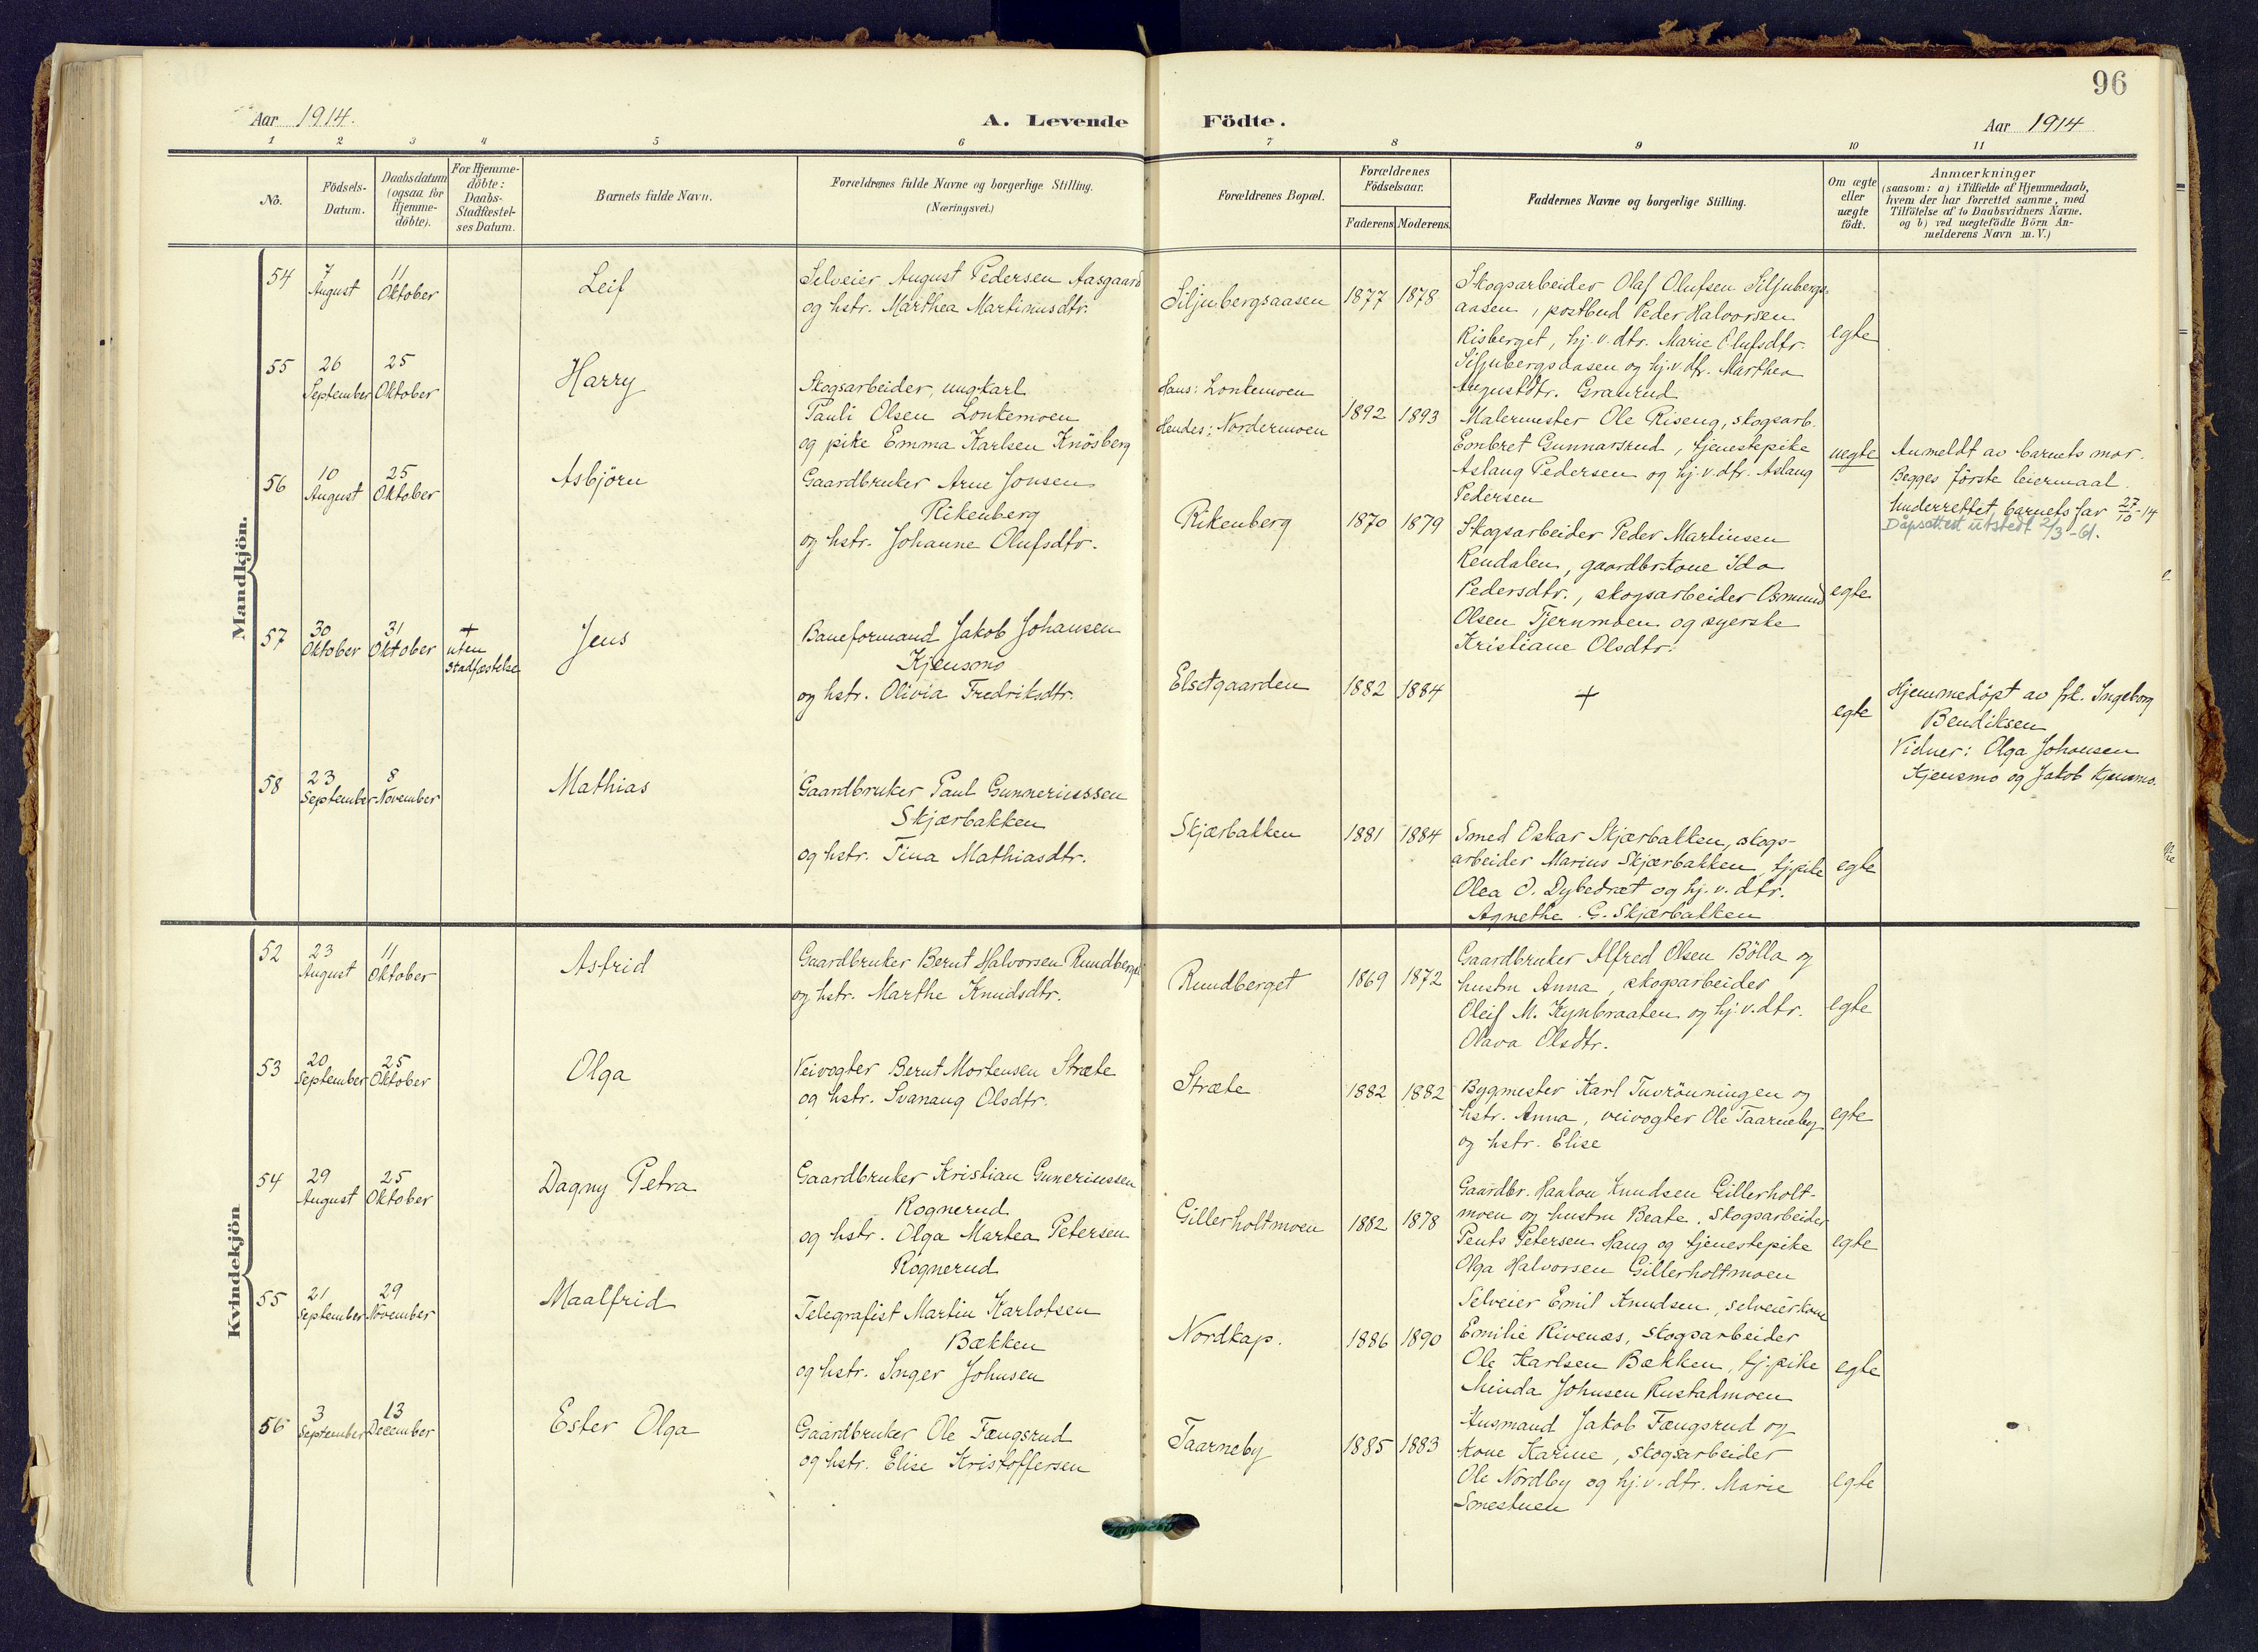 96
Aar 1914.
A. Levende Födte.
Aar 1914
1 2 3 4 5 6 7 8 9 10 11
No.
Födsels-
Datum.
Daabsdatum
(ogsaa for
Hjemme-
döbte).
For Hjemme-
döbte:
Daabs-
Stadfæstel-
ses Datum.
Barnets fulde Navn.
Forældrenes fulde Navne og borgerlige Stilling.
(Næringsvei.)
Forældrenes Bopæl.
Forældrenes
Födselsaar.
Faderens Moderens.
Faddernes Navne og borgerlige Stilling.
Om ægte
eller
uægte
födt.
Anmærkninger
(saasom: a) i Tilfælde af Hjemmedaab,
hvem der har forrettet samme, med
Tilföielse af to Daabsvidners Navne.
og b) ved uægtefödte Börn An-
melderens Navn m. V.)
Mandkjön.
54
7
August
11
Oktober
Leif
Selveier August Pedersen Aasgaard
og hstr. Marthea Martinusdtr.
Siljubergsaasen
1877 1878
Skogsarbeider Olaf Olufsen Siljubergs-
aasen, postbud Peder Halvorsen
Risberget, hj. v. dtr. Marie Olufsdtr.
Siljubergsaasen og hj. v. dtr. Marthea
Augustdtr. Granrud
egte
55
26
September
25
Oktober
Harry
Skogsarbeider, ungkarl
Pauli Olsen Lontemoen
og pike Emma Karlsen Knösberg
Hans: Lontemoen
Hendes: Nordermoen
1892 1893
Malermester Ole Riseng, skogsarb.
Embret Gunnarsrud, tjenestepike
Aslaug Pedersen og hj. v. dtr. Aslaug
Pedersen
uegte
Anmeldt av barnets mor.
Begges første leiermaal.
Underrettet barnets far 27/10-14
Dåpsattest utstedt 2/3-61.
56
10
August
25
Oktober
Asbjörn
Gaardbruker Arne Jonsen
Rikenberg
og hstr. Johanne Olufsdtr.
Rikenberg
1870 1879
Skogsarbeider Peder Martinsen
Rendalen, gaardbr.kone Ida
Pedersdtr., skogsarbeider Osmund
Olsen Tjernmoen og syerske
Kristiane Olsdtr.
egte
57
30
Oktober
31
Oktober
+
uten
stadfæstelse
Jens
Baneformand Jakob Johansen
Kjensmo
og hstr. Olivia Fredriksdtr.
Elsetgaarden
1882 1884
+
egte
Hjemmedöpt av frk. Ingeborg
Bendiksen
Vidner: Olga Johansen
Kjensmo og Jakob Kjensmo.
58
23
September
8
November
Mathias
Gaardbruker Paul Gunneriussen
Skjærbakken
og hstr. Tina Mathiasdtr.
Skjærbakken
1881 1884
Smed Oskar Skjærbakken, skogs-
arbeider Marius Skjærbakken, tj.pike
Olea O. Dybedræt og hj. v. dtr.
Agnethe G. Skjærbakken
egte
Kvindekjön
52
23
August
11
Oktober
Astrid
Gaardbruker Bernt Halvorsen Rundberget
og hstr. Marthe Knudsdtr.
Rundberget
1869 1872
Gaardbruker Alfred Olsen Bölla og
hustru Anna, skogsarbeider
Oleif M. Kynbraaten og hj. v. dtr.
Olava Olsdtr.
egte
53
20
September
25
Oktober
Olga
Veivogter Bernt Mortensen Stræte
og hstr. Svanaug Olsdtr.
Stræte
1882 1882
Bygmester Karl Tuvrönningen og
hstr. Anna, veivogter Ole Taarneby
og hstr. Elise
egte
54
29
August
25
Oktober
Dagny Petra
Gaardbruker Kristian Guneriussen
Rognerud
og hstr. Olga Martea Petersen
Rognerud
Gillerholtmoen
1882 1878
Gaardbr. Haakon Knudsen Gillerholt-
moen og hustru Beate, skogsarbeider
Pents Petersen Haug og tjenestepike
Olga Halvorsen Gillerholtmoen
egte
55
21
September
29
November
Maalfrid
Telegrafist Martin Karlotsen
Bækken
og hstr. Inger Johnsen
Nordkap.
1886 1890
Selveier Emil Knudsen, selveierkone
Emilie Rivenes, skogsarbeider
Ole Karlsen Bækken, tj.pike
Minda Johnsen Rustadmoen
egte
56
3
September
13
December
Ester Olga
Gaardbruker Ole Fængsrud
og hstr. Elise Kristoffersen
Taarneby
1885 1883
Husmand Jakob Fængsrud og
kone Karine, skogsarbeider
Ole Nordby og hj. v. dtr. Marie
Smestuen
egte